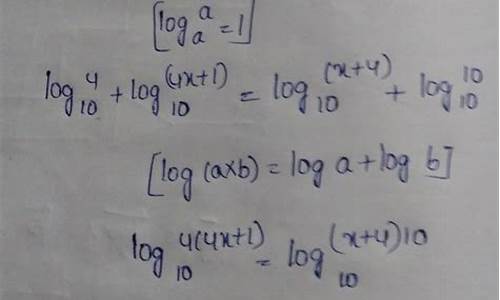 [log_a^a = 1]
log_10^4 + log_10^(4x+1) = log_10^(x+4) + log_10^10
[log (a×b) = log a + log b]
log_10^4(4x+1) = log_10^(x+4)10